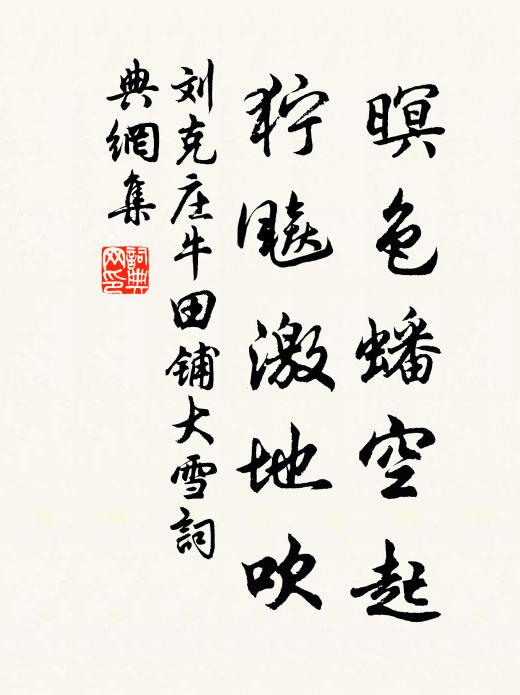 暝色蟠空起
狞飚激地吹
刘克庄牛田铺大雪詞
典網集
詞典網印